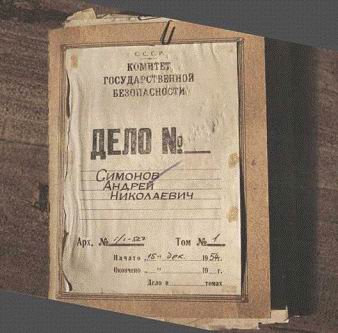 С.С.С.Р.
КОМИТЕТ
ГОСУДАРСТВЕННОЙ
БЕЗОПАСНОСТИ
ДЕЛО №
СИМОНОВ
АНДРЕЙ
НИКОЛАЕВИЧ
Арх. № Том № 1
Начато „15" дек. 1954г.
Окончено „ " 19 г.
Дело в томах